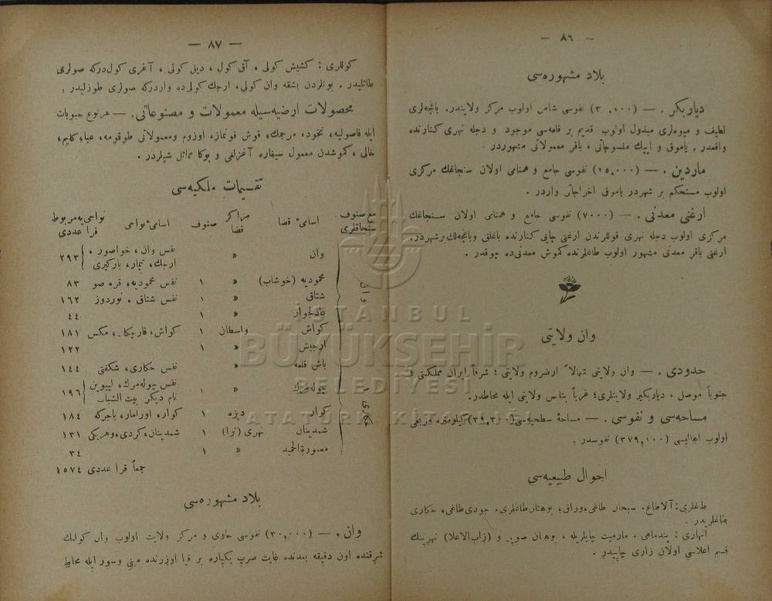 — ٨٦ —
بلاد مشهوره‌سی
دیاربکر . — نفوسی شامل اولوب مرکز ولایتدر. باغچه‌لری
لطیف و میوه‌لری مبذول اولوب قدیم بر قلعه‌سی موجود و دجله نهری کنارنده
واقعدر. پاموق و ایپك منسوجاتی، باقر معمولاتی مشهوردر.
ماردین . — (١٥,٠٠٠) نفوسی جامع و همنامی اولان سنجاغك مرکزی
اولوب مستحکم بر شهردر پاموق اخراجاتی واردر.
ارغنی معدنی . — (٧٠٠٠) نفوسی جامع و همنامی اولان سنجاغك
مرکزی اولوب دجله نهری قوللرندن ارغنی چایی کنارنده باغلق وباغچه‌لك بر شهردر.
ارغنی باقر معدنی مشهور اولوب طاغلرنده کموش معدنی ده چوقدر .
وان ولایتی
حدودی . — وان ولایتی شمالاً ارضروم ولایتی؛ شرقاً ایران مملکتی و
جنوباً موصل ، دیاربکیر ولایتلری؛ غرباً بتلیس ولایتی ایله محاطدر.
مساحه‌سی و نفوسی . — مساحهٔ سطحیه‌سی کیلومتره مربعی
اولوب اهالیسی (٣٧٩,١٠٠) نفوسدر .
احوال طبیعیه‌سی
طاغلری: آلاطاغ، سبحان طاغی، جودی طاغی، حکاری
طاغلریدر .
انهاری : بندماهی . مارمیت چایلریله . بوهتان صویی و (زاب الاعلا) نهرینك
قسم اعلاسی اولان زاری چاییدر .
— ٨٧ —
کوللری : کشیش کولی ، آق کول ، دیل کولی . آغری کول درکه صولری
طاتلیدر . بونلردن بشقه وان کولی ، ارجك کولی ده واردرکه صولری طوزلیدر .
محصولات ارضیه‌سیله معمولات و مصنوعاتی . — هر نوع حبوبات
ایله فاصولیه ، نخود، مرجمك، قوش قونماز، اوزوم ومعمولاتی طوقومه، عبا، کلیم،
خالی ، کموشدن معمول سیغاره آغزلغی و بوکا مماثل شیلردر .
تقسیمات ملکیه‌سی
مع صنوف سنجاقلری اسامیٔ قضا مراکز قضا صنوف اسامیٔ نواحی نواحی‌یه مربوط قرا عددی
وان
وان » نفس وان ، خواصور ، ارجك، تیمار، بارکیری ٢٩٣
محمودیه (خوشاب) » ١ نفس محمودیه، قره صو ٨٣
شتاق » ١ نفس شتاق ، نوردوز ١٦٢
عادلجواز » ١ ٤٤
کواش واسطان ١ کواش، قارچکان، مکس ١٨١
ارجیش » ١ ١٢٢
حکاری
باش قلعه » نفس حکاری، شکفتی ١٤٤
» نام دیکر بیت الشباب ١٩٦
کوار دیزه ١ کوار، اورامار، باجرکه ١٨٤
شمدینان نهری (نوا) ١ شمدینان، کردی، وهرکی ١٣١
معمورة الحمید » ١ ٣٤
جمعاً قرا عددی ١٥٧٤
بلاد مشهوره‌سی
وان . — (٣٠,٠٠٠) نفوسی حاوی و مرکز ولایت اولوب وان کولنك
شرقنده اون دقیقه بعدنده غایت صرپ یکپاره بر قیا اوزرنده مبنی وسور ایله محاط
ISTANBUL
BÜYÜKŞEHİR
BELEDİYESİ
ATATÜRK KİTAPLIĞI